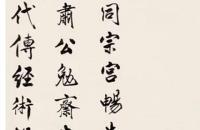 同宗宫暢生
肅公勉齋先
代傳經術